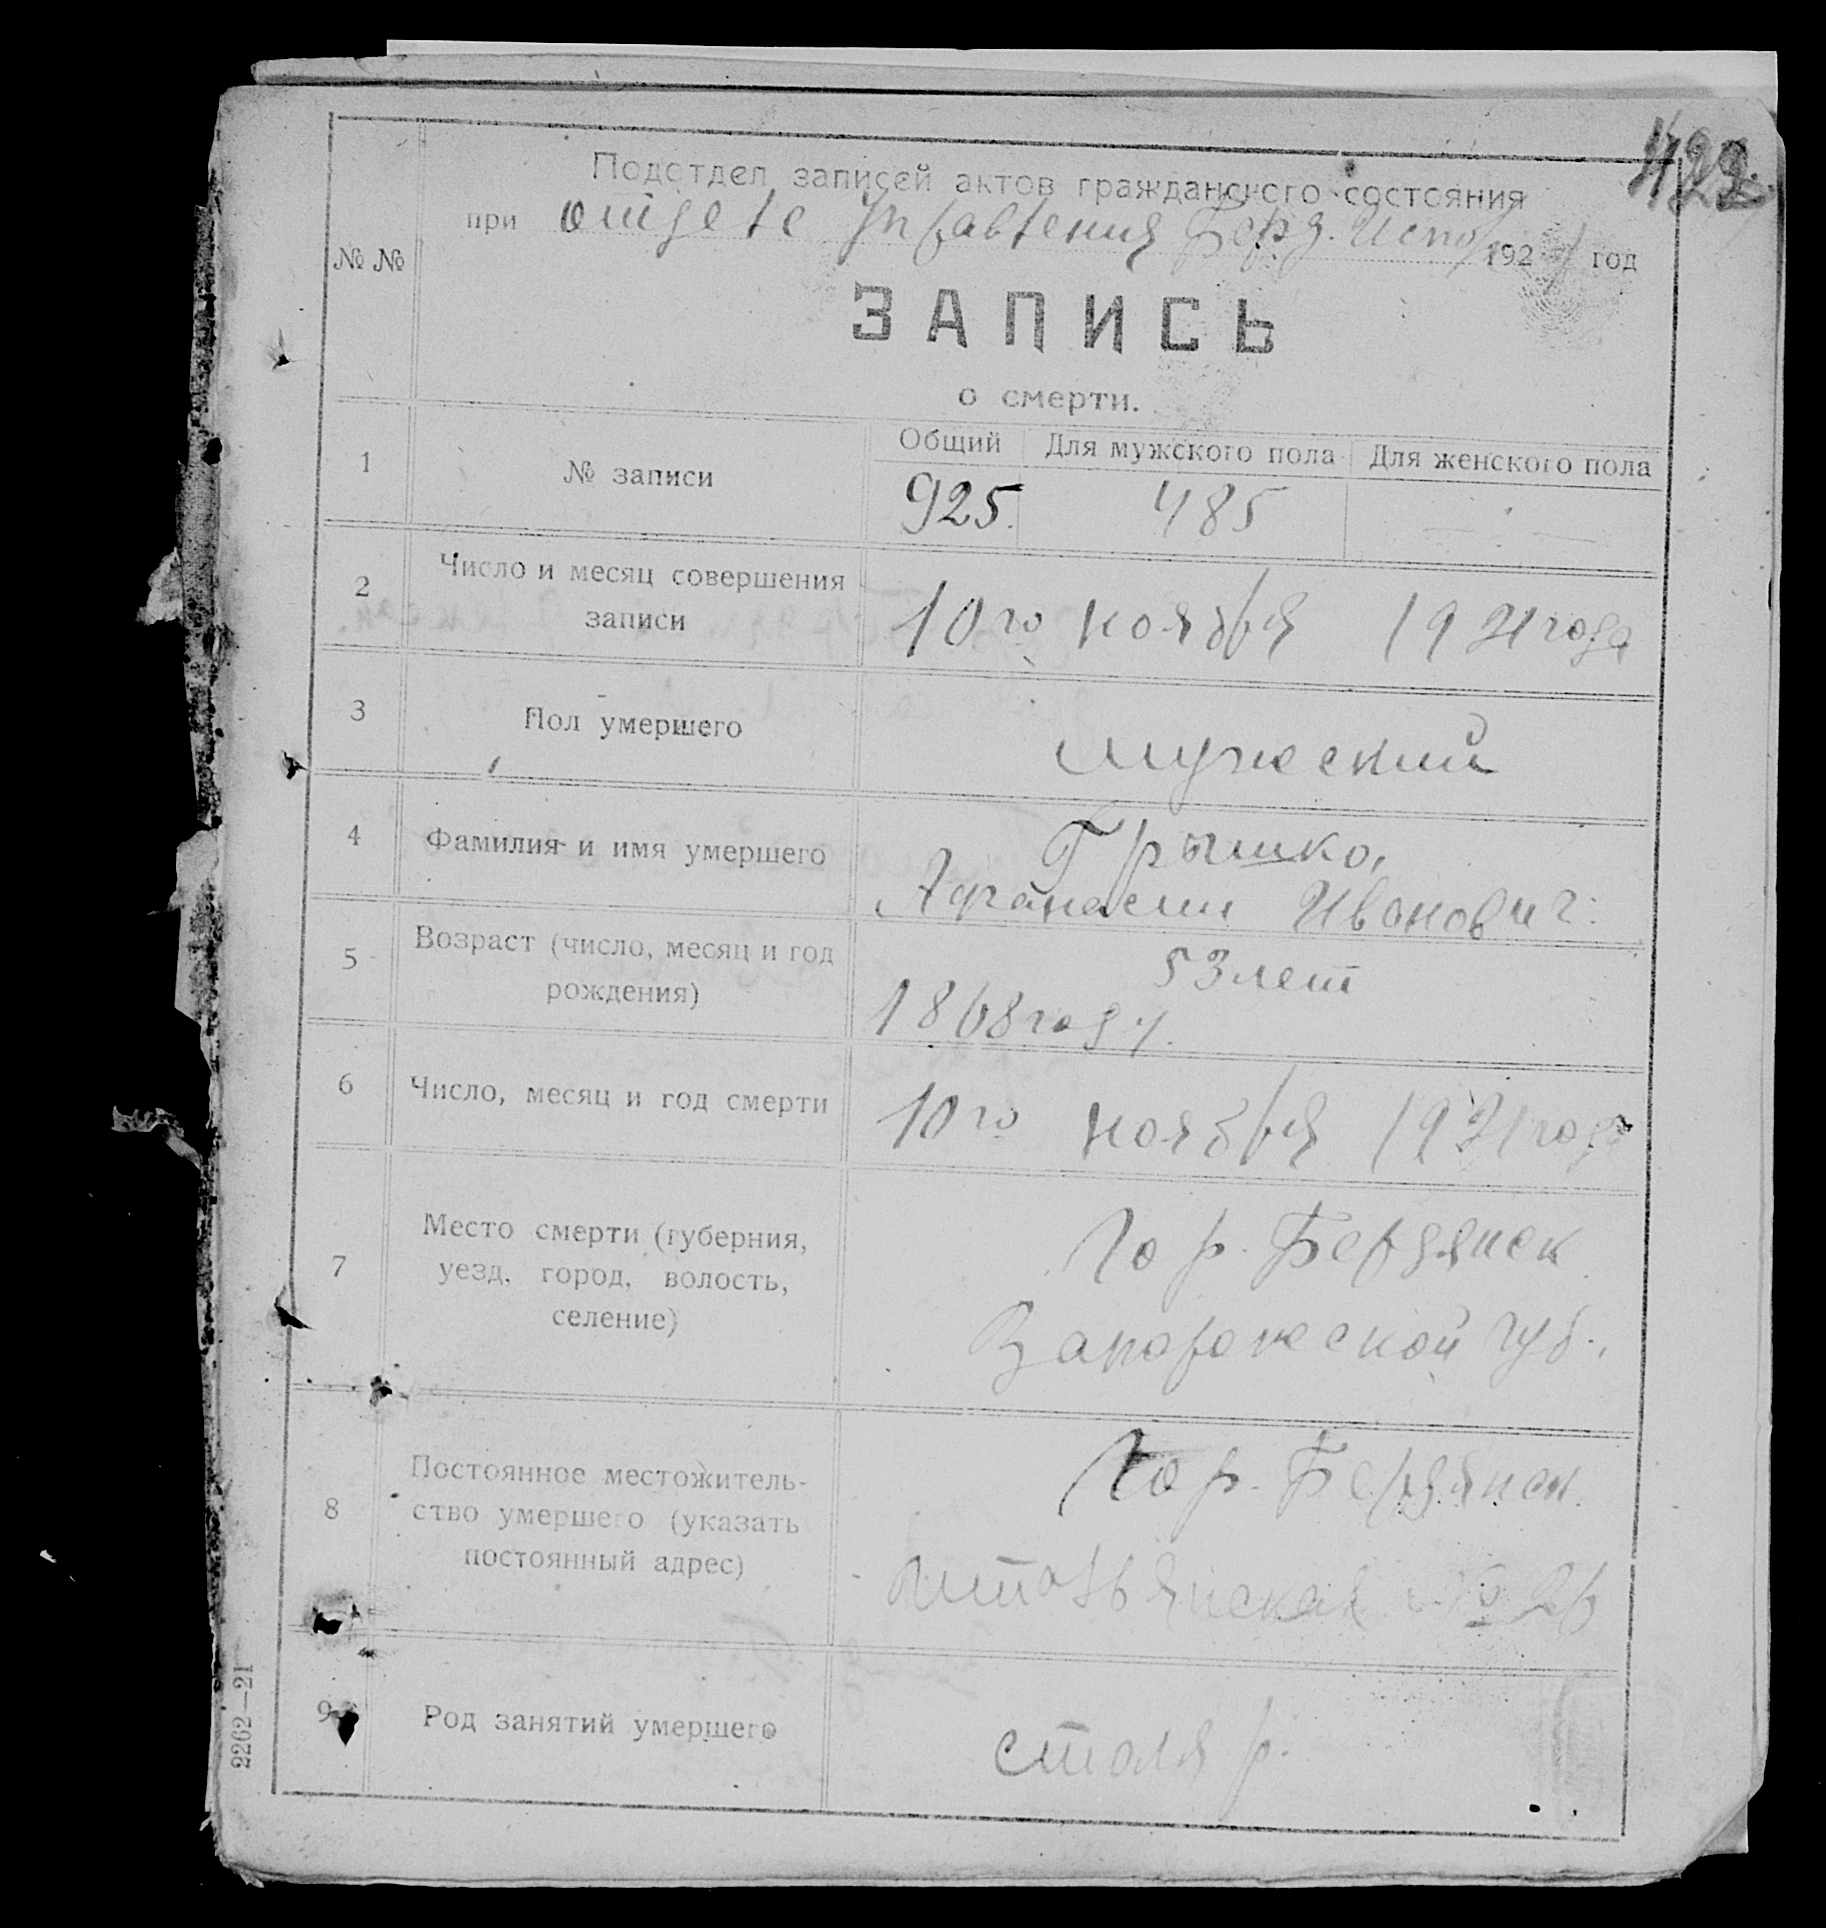 422
Подотдел записей актов гражданского состояния
при отделе Управления Берд. Испол 1921 год
№ №
ЗАПИСЬ
о смерти.
1 № записи
Общий Для мужского пола Для женского пола
925. 485 —
2 Число и месяц совершения
записи
10го ноября 1921 года
3 Пол умершего
мужеский
4 Фамилия и имя умершего
Грышко,
Афанасии Иванович.
5 Возраст (число, месяц и год
рождения)
53 лет
1868 году.
6 Число, месяц и год смерти
10го ноября 1921 года
7 Место смерти (губерния,
уезд, город, волость,
селение)
Гор. Бердянск
Запорожеской губ.,
8 Постоянное местожитель-
ство умершего (указать
постоянный адрес)
Гор. Бердянск.
№ 26
9 Род занятий умершего
столяр.
2262—21